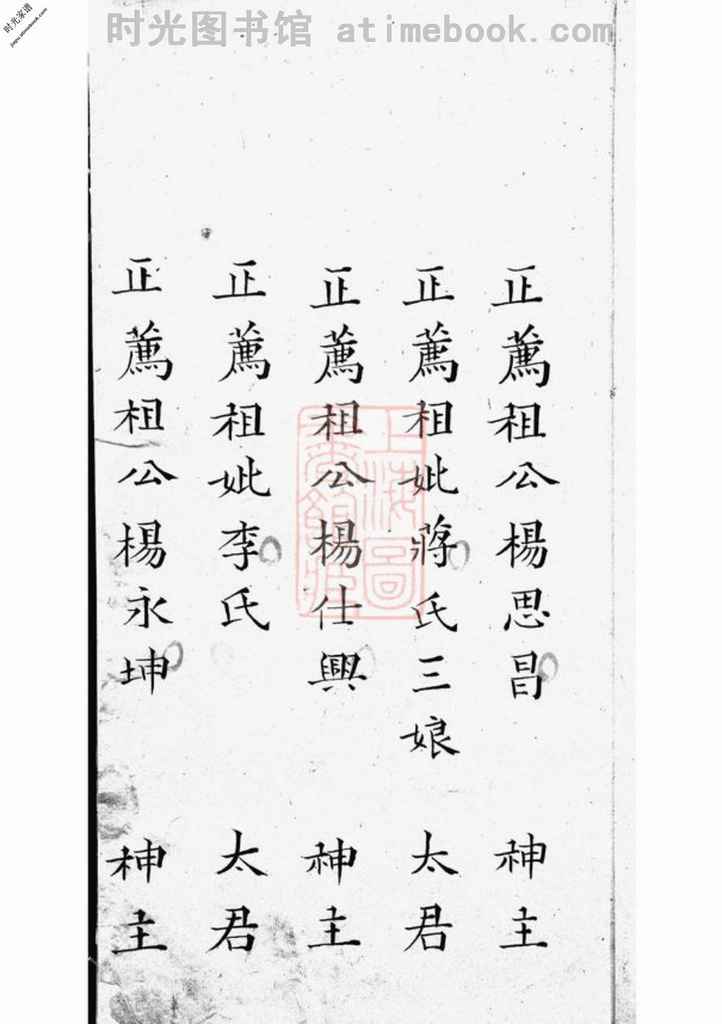 时光图书馆 atimebook.com
时光家谱
jiapu.atimebook.com
正薦祖公楊思昌 神主
正薦祖妣蔣氏三娘 太君
正薦祖公楊仕興 神主
正薦祖妣李氏 太君
正薦祖公楊永坤 神主
上海圖